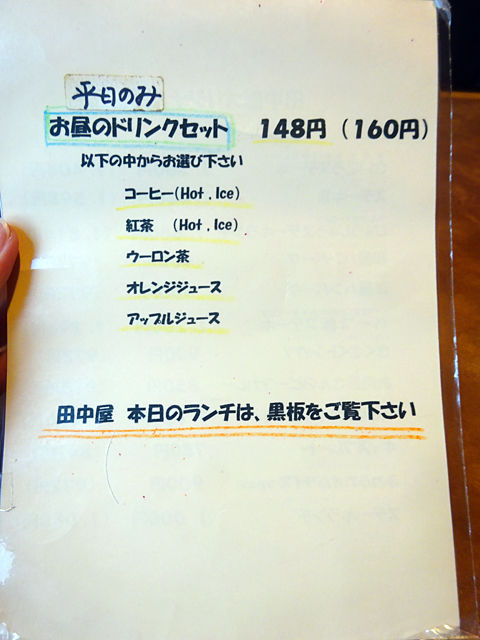 平日のみ
お昼のドリンクセット 148円 (160円)
以下の中からお選び下さい
コーヒー(Hot , Ice)
紅茶 (Hot , Ice)
ウーロン茶
オレンジジュース
アップルジュース
田中屋 本日のランチは、黒板をご覧下さい